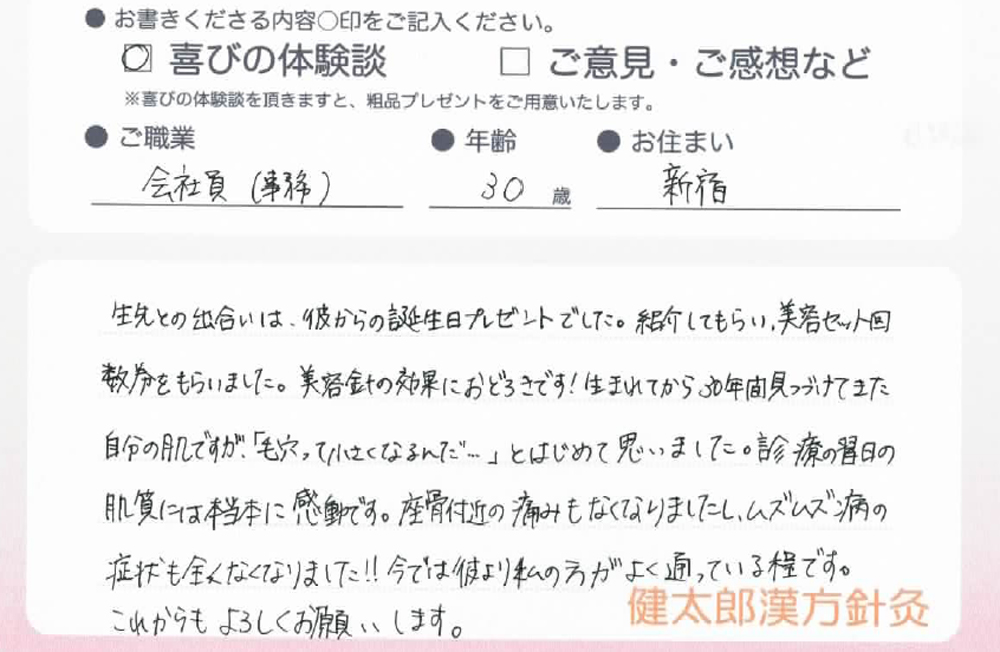 ● お書きくださる内容○印をご記入ください。
☑ 喜びの体験談 □ ご意見・ご感想など
※喜びの体験談を頂きますと、粗品プレゼントをご用意いたします。
● ご職業 ● 年齢 ● お住まい
会社員(事務) 30 歳 新宿
生先との出合いは、彼からの誕生日プレゼントでした。紹介してもらい、美容セット回
数券をもらいました。美容針の効果におどろきです!生まれてから、30年間見つづけてきた
自分の肌ですが、「毛穴って小さくなるんだ…」とはじめて思いました。診療の翌日の
肌質には本当本に感動です。座骨付近の痛みもなくなりましたし、ムズムズ病の
症状も全くなくなりました!!今では彼より私の方がよく通っている程です。
これからもよろしくお願いします。
健太郎漢方針灸